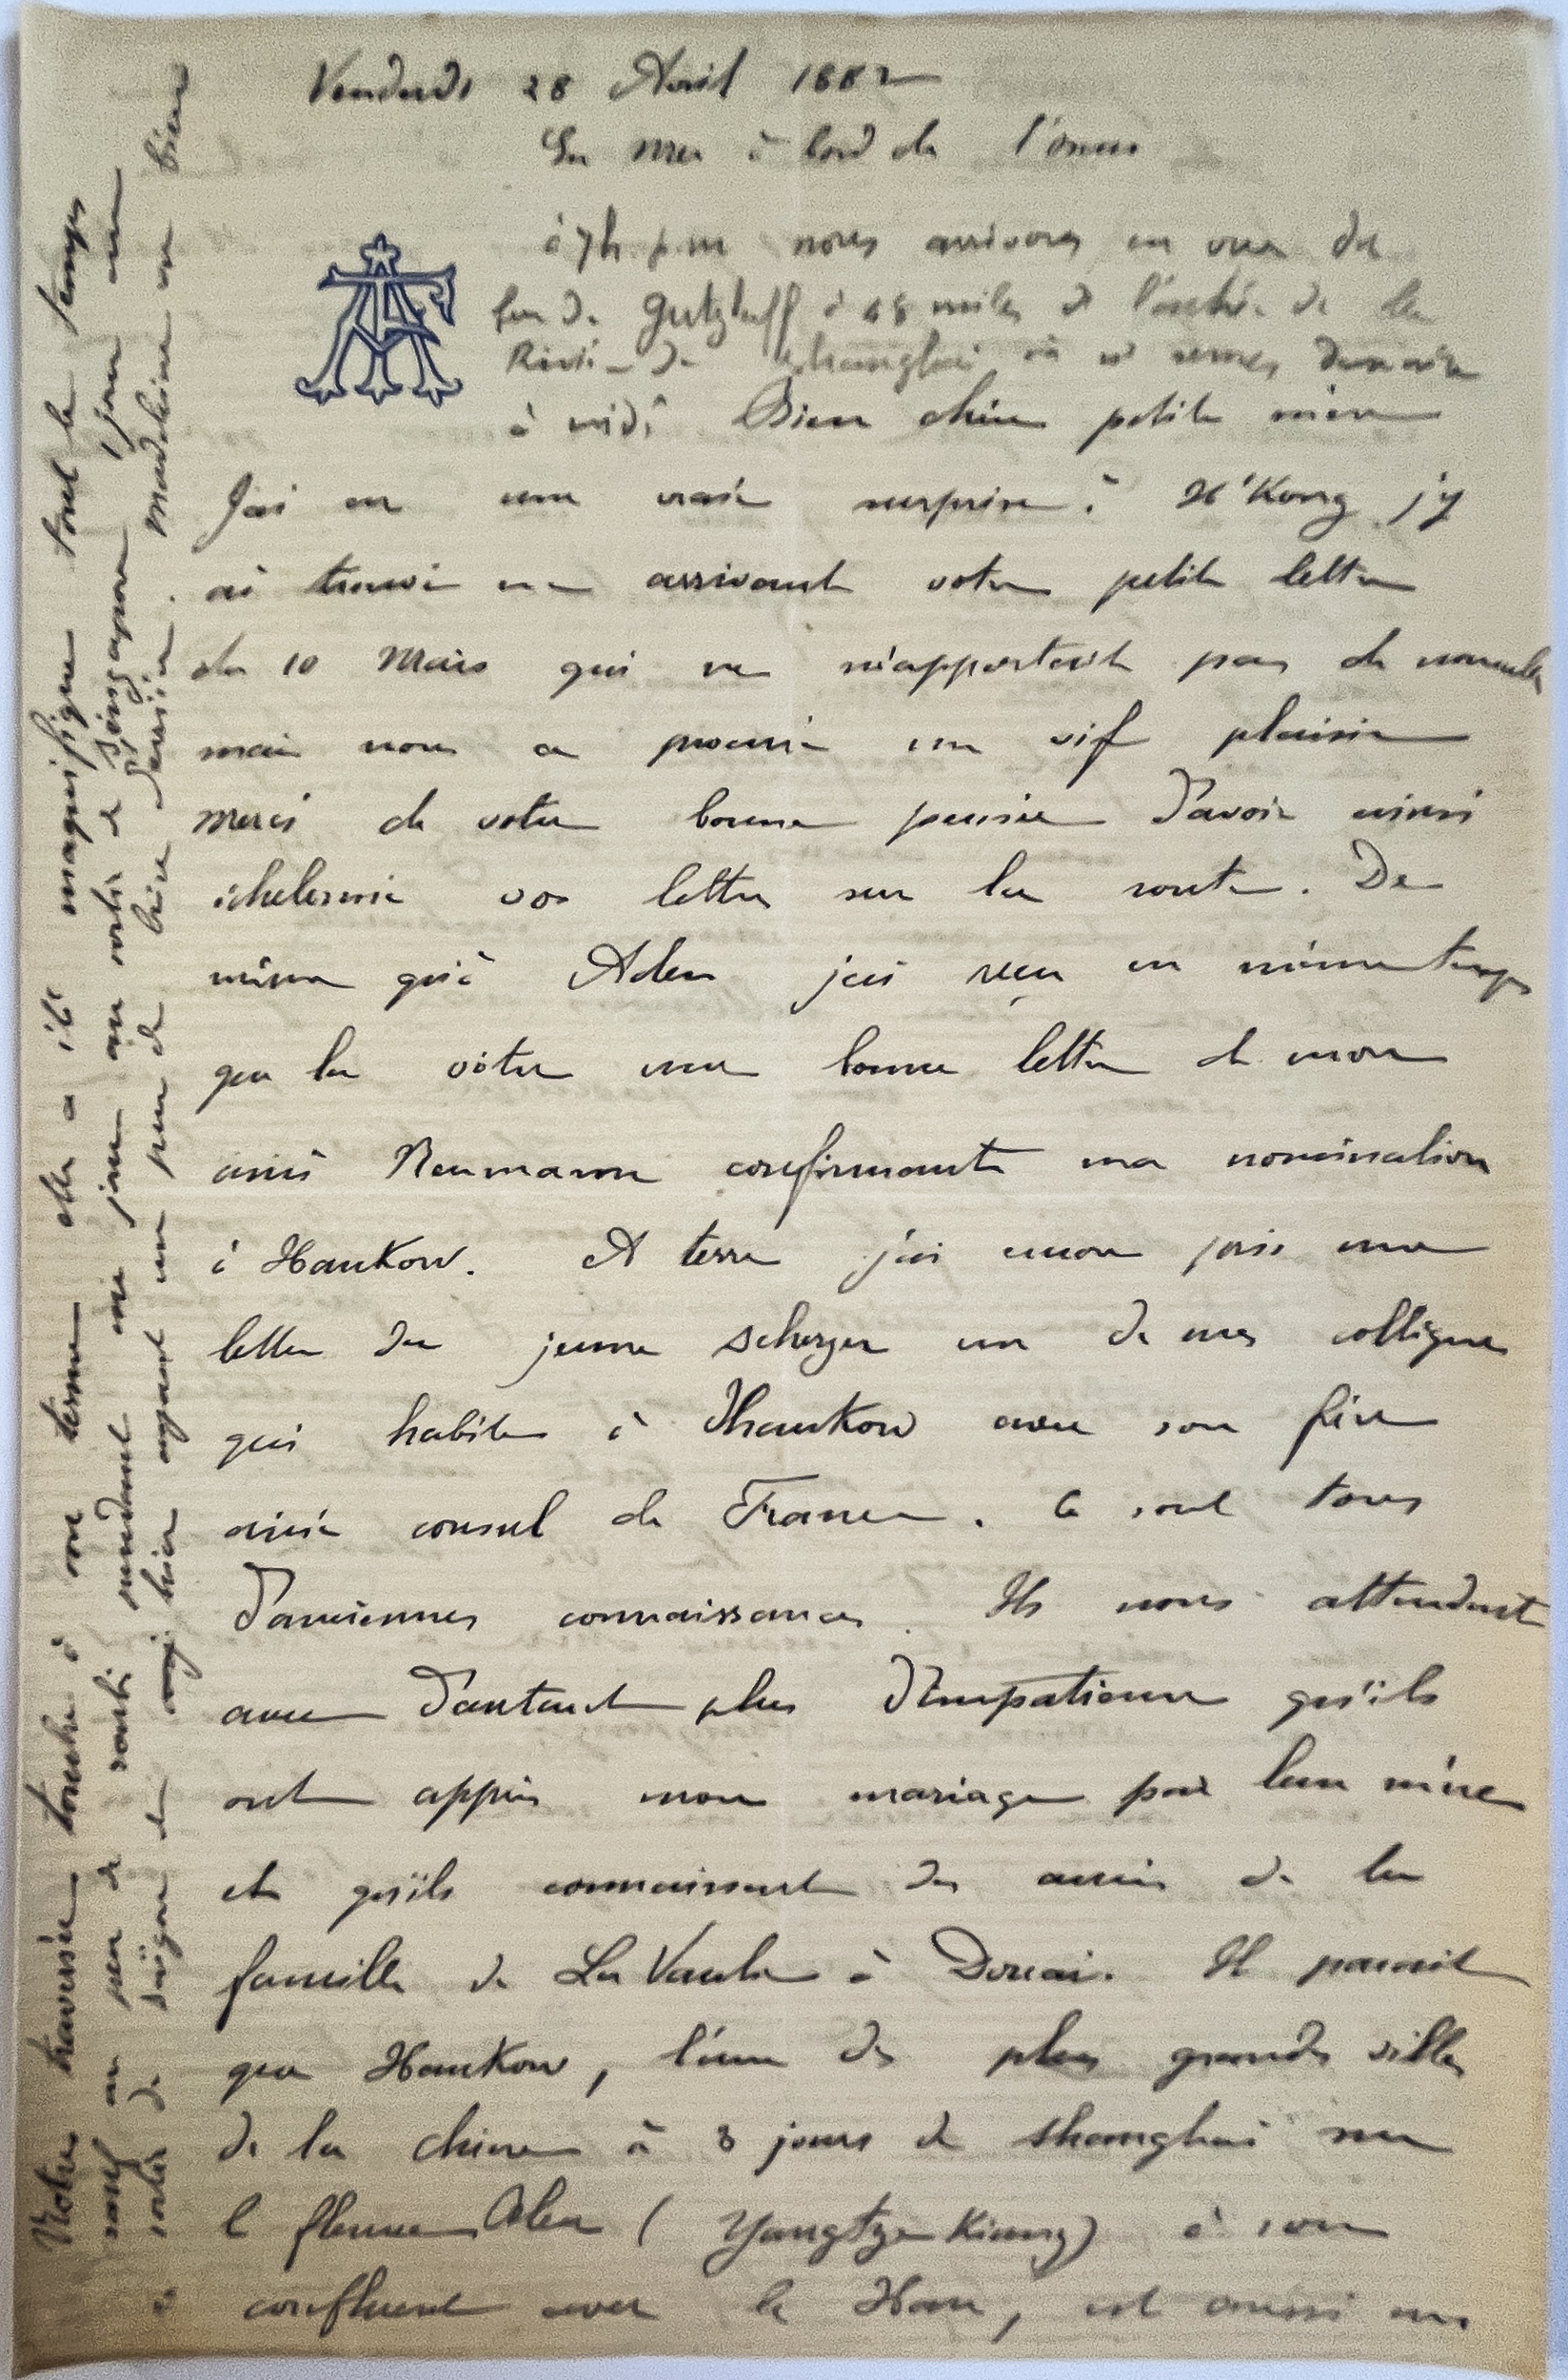 Vendredi 28 Avril 1882
En mer à bord de l'
à 7h p.m nous arrivons en vue du
feu de Gutzlaff à 48 miles de l'entrée de la
Rivière de Shanghai où n/ serons demain
à midi Bien chère petite mère
J'ai eu une vraie surprise à H'Kong j'y
ai trouvé en arrivant votre petite lettre
du 10 Mars qui ne m'apportait pas de nouvelles
mais nous a procuré un vif plaisir
merci de votre bonne pensée d'avoir ainsi
échelonné vos lettres sur la route. De
même qu'à Aden j'ai reçu en même temps
que la vôtre une bonne lettre de mon
ami Neumann confirmant ma nomination
à Hankow. A terre j'ai encore pris une
lettre du jeune Scherzer un de mes collègues
qui habite à Hankow avec son frère
ainé consul de France. Ce sont tous
d'anciennes connaissances. Ils nous attendent
avec d'autant plus d'impatience qu'ils
ont appris mon mariage par leur mère
et qu'ils connaissent des amis de la
famille de La Vaulx à Douai. Il parait
que Hankow, l'une des plus grandes villes
de la chine à 3 jours de Shanghai sur
l fleuve Bleu (Yangtze Kiang) à son
confluent avec le Han, est aussi un
Notre traversée touche à son terme elle a été magnifique tout le temps
sauf un peu de roulis pendant une journée au sortir de Singapore 1 jour
à sortir de Saïgon et hier ayant un peu de brise derrière. Madeleine va bien